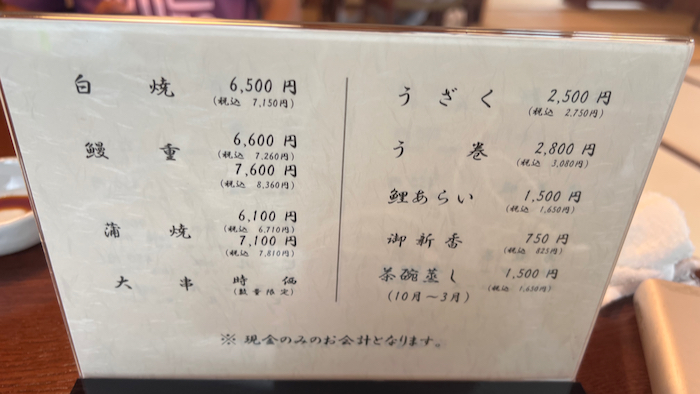 白焼 6,500円
(税込 7,150円)
鰻重 6,600円
(税込 7,260円)
7,600円
(税込 8,360円)
蒲焼 6,100円
(税込 6,710円)
7,100円
(税込 7,810円)
大串 時価
(数量限定)
うざく 2,500円
(税込 2,750円)
う巻 2,800円
(税込 3,080円)
鯉あらい 1,500円
(税込 1,650円)
御新香 750円
(税込 825円)
茶碗蒸し 1,500円
(10月〜3月) (税込 1,650円)
※ 現金のみのお会計となります。